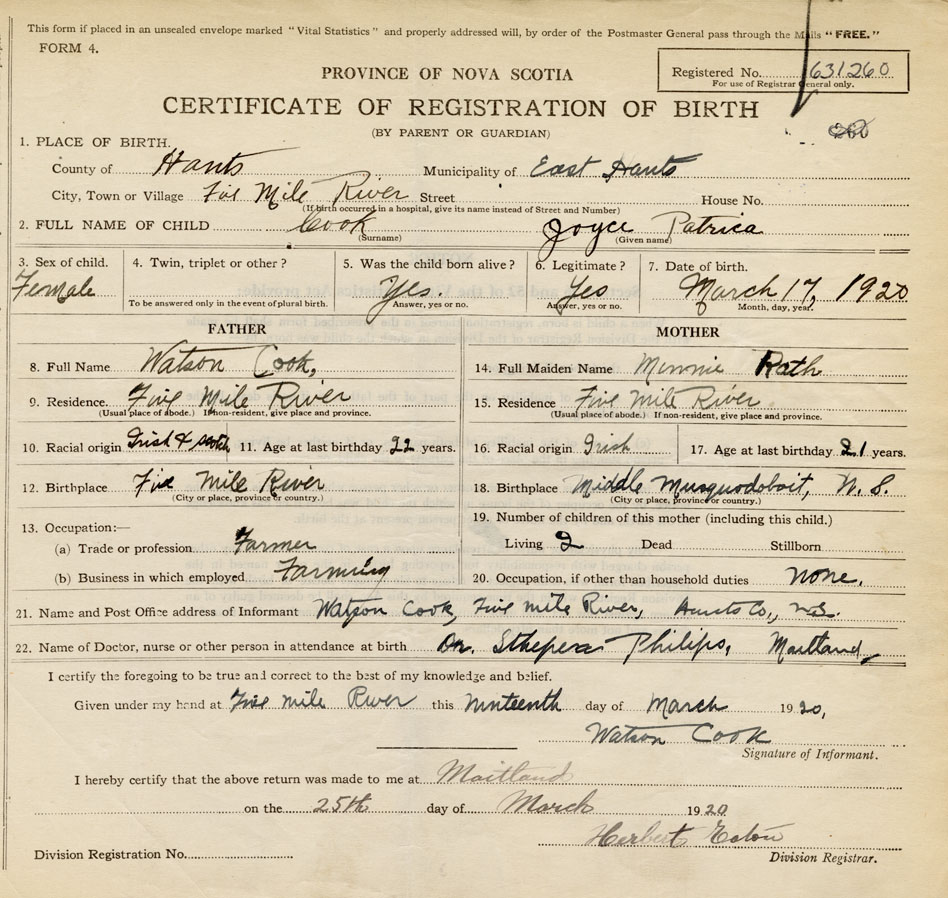 This form if placed in an unsealed envelope marked "Vital Statistics" and properly addressed will, by order of the Postmaster General pass through the Mails "FREE."
FORM 4.
Registered No. 631260
For use of Registrar General only.
PROVINCE OF NOVA SCOTIA
CERTIFICATE OF REGISTRATION OF BIRTH
(BY PARENT OR GUARDIAN)
1. PLACE OF BIRTH.
County of Hants Municipality of East Hants
City, Town or Village Five Mile River Street House No.
(If birth occurred in a hospital, give its name instead of Street and Number)
2. FULL NAME OF CHILD Cook Joyce Patrica
(Surname) (Given name)
3. Sex of child. 4. Twin, triplet or other? 5. Was the child born alive? 6. Legitimate? 7. Date of birth.
Female Yes. Yes March 17, 1920
To be answered only in the event of plural birth. Answer, yes or no. Answer, yes or no. Month, day, year.
FATHER MOTHER
8. Full Name Watson Cook, 14. Full Maiden Name Minnie Rath
9. Residence. Five Mile River 15. Residence Five Mile River.
(Usual place of abode.) If non-resident, give place and province. (Usual place of abode.) If non-resident, give place and province.
10. Racial origin Irish & scotch 11. Age at last birthday 22 years. 16. Racial origin Irish 17. Age at last birthday 21 years.
12. Birthplace Five Mile River 18. Birthplace Middle Musquodoboit, N. S.
(City or place, province or country.) (City or place, province or country.)
13. Occupation:— 19. Number of children of this mother (including this child.)
(a) Trade or profession Farmer Living 2 Dead Stillborn
(b) Business in which employed Farming 20. Occupation, if other than household duties none.
21. Name and Post Office address of Informant Watson Cook, Five mile River, Hants Co., N.S.
22. Name of Doctor, nurse or other person in attendance at birth Dr. Philips, Maitland,
I certify the foregoing to be true and correct to the best of my knowledge and belief.
Given under my hand at Five mile River this ninteenth day of March 1920,
Watson Cook
Signature of Informant.
I hereby certify that the above return was made to me at Maitland
on the 25th day of March 1920
Herbert
Division Registration No. Division Registrar.